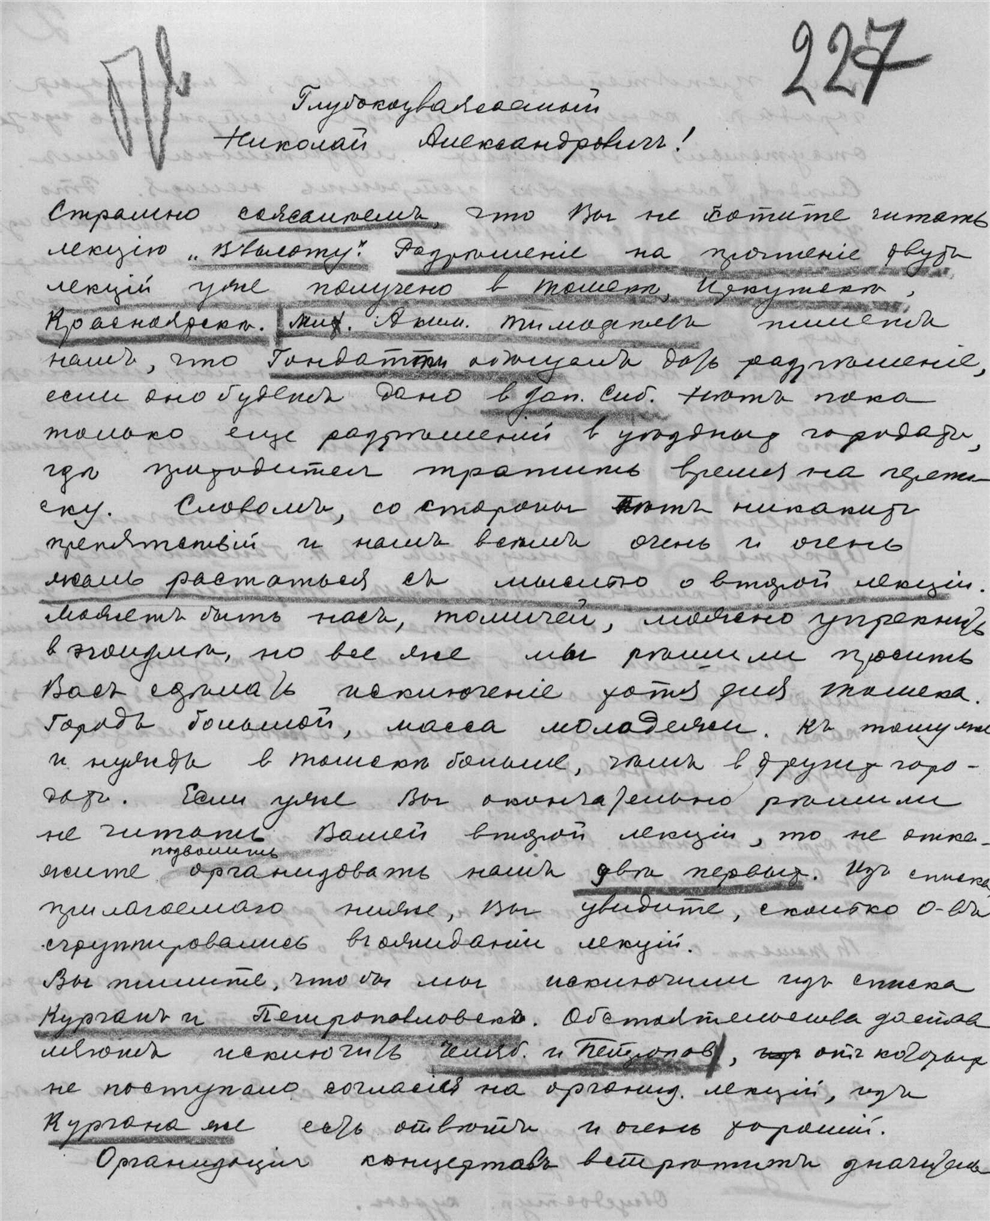 227
Глубокоуважаемый
Николай Александровичъ!
Страшно сожалѣемъ, что Вы не хотите читать
лекцію „Вѣ Полоту“. Разрѣшеніе на прочтеніе двухъ
лекцій уже получено в Томскѣ, Иркутскѣ,
Красноярскѣ. Мих. Аким. Тимофѣевъ пишетъ
намъ, что Гондатти обѣщалъ дать разрѣшеніе,
если оно будетъ дано в Зап. Сиб. Нѣтъ пока
только еще разрѣшеній в уѣздныхъ городахъ,
гдѣ приходится тратить время на перепи
ску. Словомъ, со стороны нѣтъ никакихъ
препятствій и намъ всѣмъ очень и очень
жаль растаться съ мыслью о второй лекціи.
Можетъ быть насъ, томичей, можно упрекнуть
в эгоизмѣ, но все же мы рѣшили просить
Васъ сдѣлать исключеніе хотя для Томска.
Городъ большой, масса молодежи. Къ тому же
и нужды в Томскѣ больше, чѣмъ в другихъ горо-
дахъ. Если уже Вы окончательно рѣшили
не читать Вашей второй лекціи, то не отка-
позволить
жите организовать намъ двѣ первыхъ. Изъ списка
прилагаемаго ниже, Вы увидите, сколько о-въ
сгруппировались в ожиданіи лекцій.
Вы пишите, что бы мы исключили изъ списка
Курганъ и Петропавловскъ. Обстоятельства застав
ляютъ исключить Челяб. и Петропав, отъ которых
не поступало согласія на организ. лекцій, изъ
Кургана же есть отвѣтъ и очень хорошій.
Организація концертовъ встрѣтитъ значитель